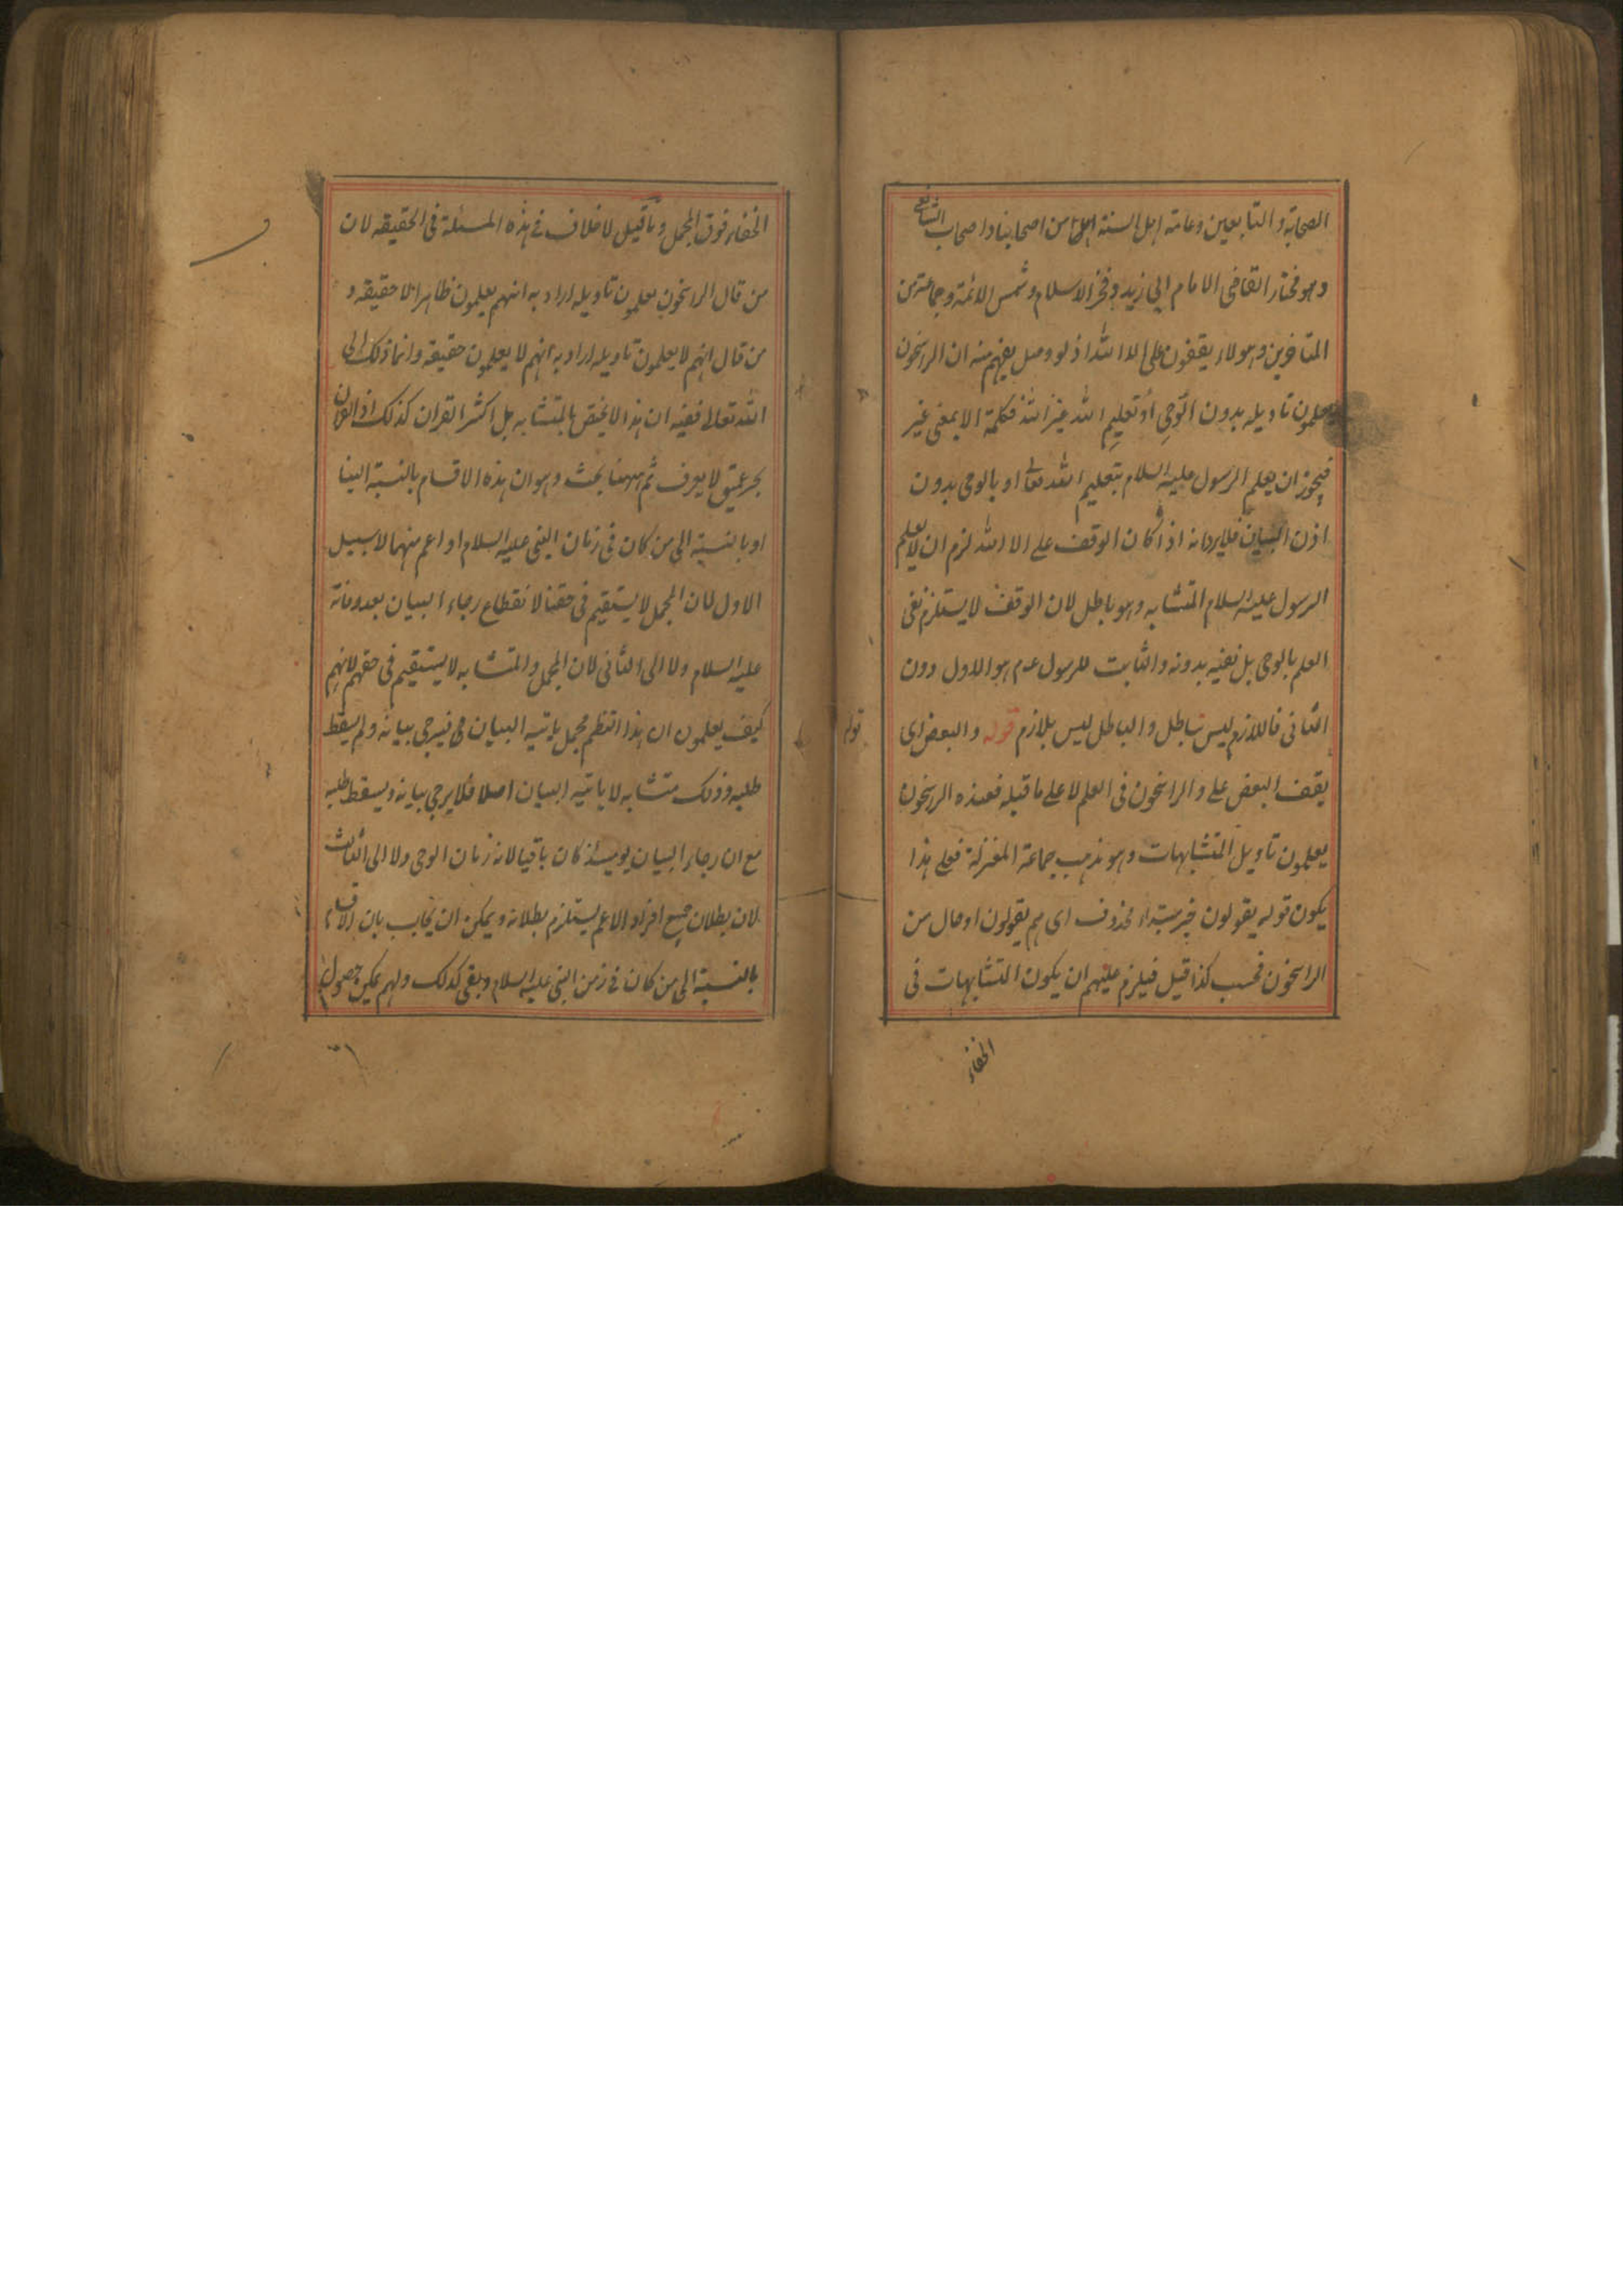 الصحابة والتابعين وعامة اهل السنة من اصحابنا واصحاب الشافعى
وهو مختار القاضى الامام ابى زيد وفخر الاسلام وشمس الائمة وجماعة من
المتاخرين وهولاء يقفون على الا الله اذ لو وصل يفهم منه ان الراسخون
يعلمون تاويله بدون الوحى او تعليم الله غير الله فكلمة الا بمعنى غير
فيجوز ان يعلم الرسول عليه السلام بتعليم الله تعالى او بالوحى بدون
اذن البيان فلا يرد انه اذا كان الوقف على الا الله لزم ان لا يعلم
الرسول عليه السلام المتشابه وهو باطل لان الوقف لا يستلزم نفى
العلم بالوحى بل نفيه بدونه والثابت للرسول عم هو الاول دون
الثانى فاللازم ليس بباطل والباطل ليس بلازم قوله والبعض اى
يقف البعض على والراسخون فى العلم لا على ما قبله فعنده الراسخون
يعلمون تاويل المتشابهات وهو مذهب جماعة المعتزلة فعلى هذا
يكون قوله يقولون خبر مبتداء محذوف اى هم يقولون او حال من
الراسخون فحسب كذا قيل فيلزم عليهم ان يكون المتشابهات فى
الخفاء
قوله
الخفاء فوق المجمل وما قيل لا خلاف فى هذه المسئلة فى الحقيقه لان
من قال الراسخون يعلمون تاويله اراد به انهم يعلمون ظاهرا لا حقيقه و
من قال انهم لا يعلمون تاويله اراد به انهم لا يعلمون حقيقه وانما ذلك الى
الله تعالى ففيه ان هذا لا يختص بالمتشابه بل اكثر القران كذلك اذ القران
بحر عميق لا يعرف ثم ههنا بحث وهو ان هذه الاقسام بالنسبة الينا
او بالنسبة الى من كان فى زمان النبى عليه السلام او اعم منهما لا سبيل
الاول لان المجمل لا يستقيم فى حقنا لانقطاع رجاء البيان بعد وفاته
عليه السلام ولا الى الثانى لان المجمل والمتشابه لا يستقيم فى حقهم لانهم
كيف يعلمون ان هذا النظم مجمل ياتيه البيان فيرجى بيانه ولم يسقط
طلبه وذلك متشابه لا ياتيه البيان اصلا فلا يرجى بيانه ويسقط طلبه
مع ان رجاء البيان يومئذ كان باقيا لانه زمان الوحى ولا الى الثالث
لان بطلان جميع افراد الاعم يستلزم بطلانه ويمكن ان يجاب بان الاقسام
بالنسبة الى من كان فى زمن النبى عليه السلام وبقى كذلك ولهم يمكن حصول